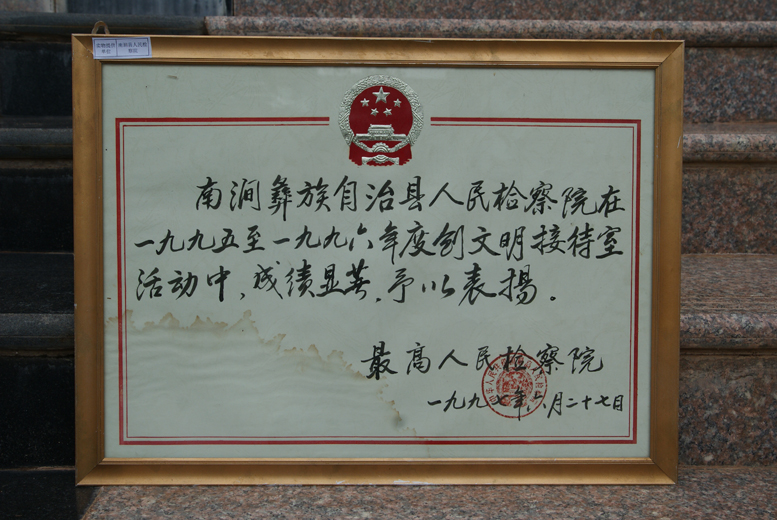 南涧彝族自治县人民检察院在
一九九五至一九九六年度创文明接待室
活动中，成绩显著，予以表扬。
最高人民检察院
一九九七年六月二十七日